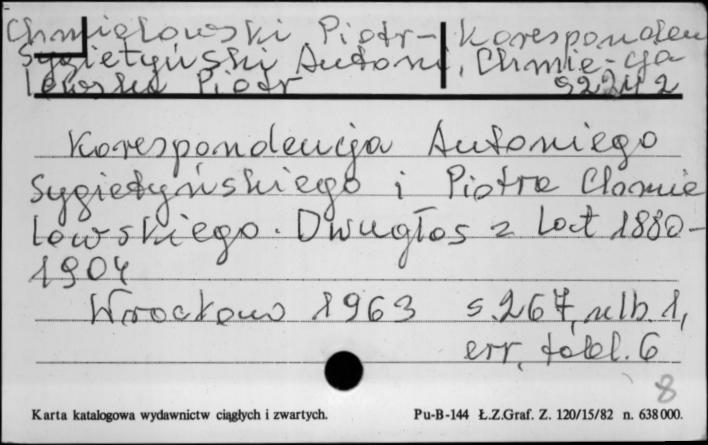 Chmielowski Piotr - Koresponden
Sygietyński Antoni, Chmie- cja
lowski Piotr
Korespondencja Antoniego
Sygietyńskiego i Piotra Chmie
lowskiego. Dwugłos z lat 1880-
1904
Wrocław 1963 s. 267, nlb. 1,
err, tabl. 6
8
Karta katalogowa wydawnictw ciągłych i zwartych. Pu-B-144 Ł.Z.Graf. Z. 120/15/82 n. 638000.